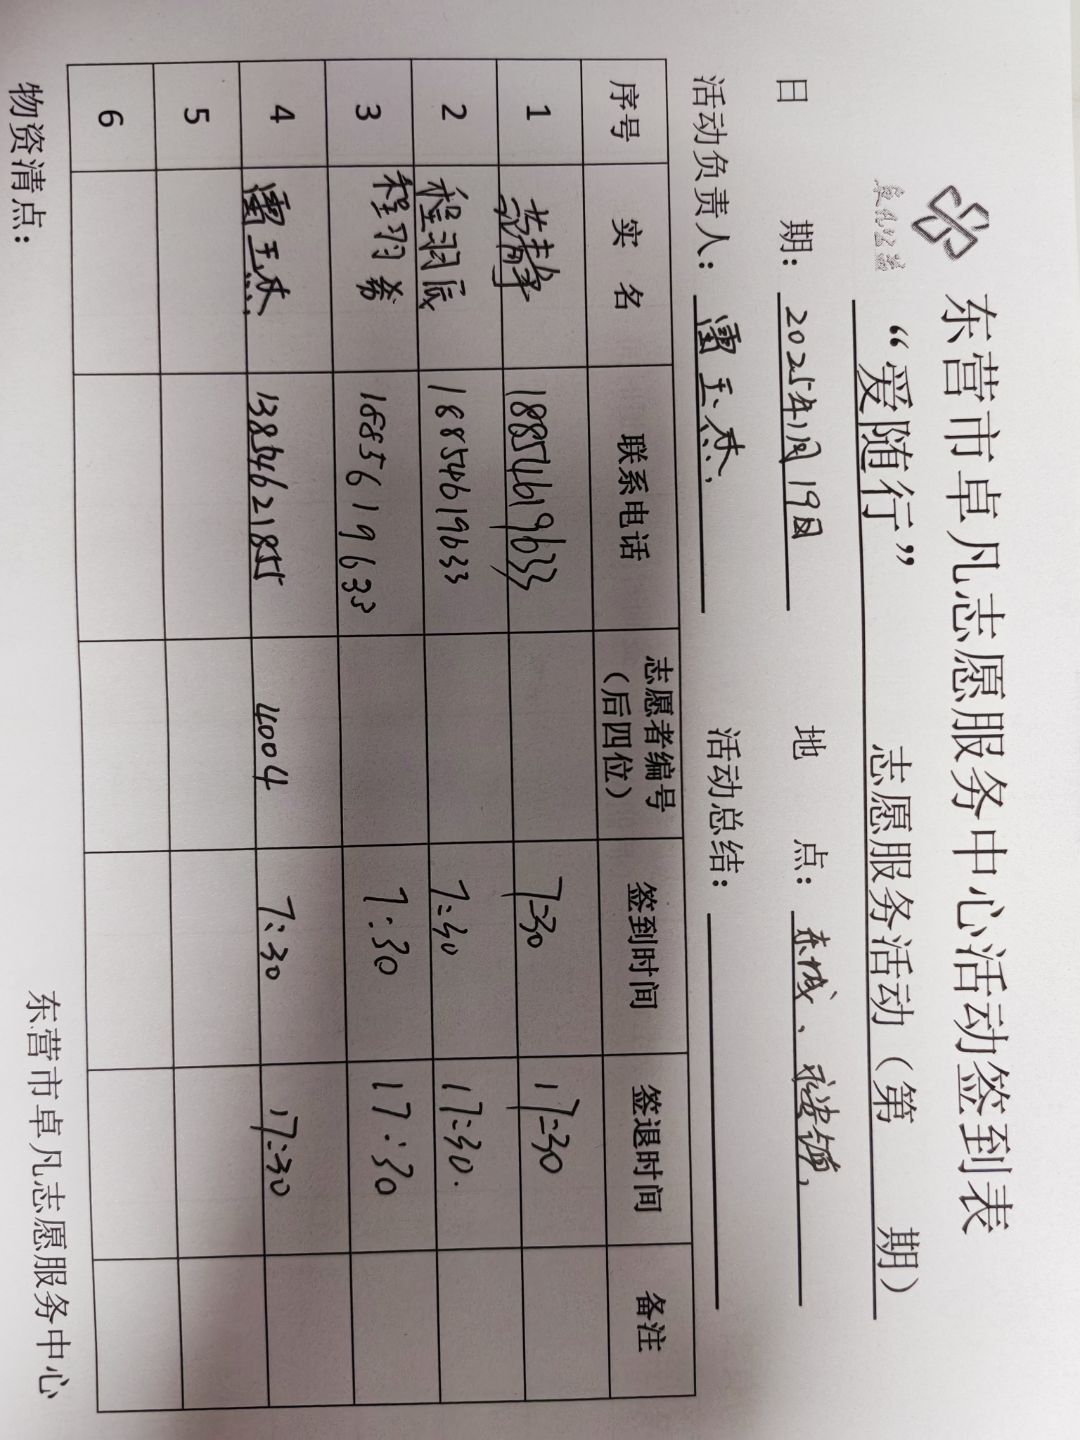 东营市卓凡志愿服务中心活动签到表
“爱随行” 志愿服务活动（第 期）
日 期：2025年1月19日 地 点：东城、永安镇
活动负责人： 活动总结：
序号 实 名 联系电话 志愿者编号（后四位） 签到时间 签退时间 备注
1 18854619633 7:30 17:30
2 程羽辰 18854619633 7:30 17:30.
3 程羽希 18856619633 7:30 17:30
4 13854621855 4004 7:30 17:30
5
6
物资清点： 东营市卓凡志愿服务中心